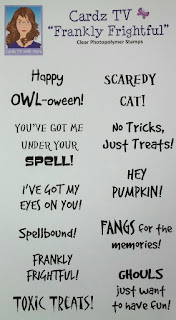 Cardz TV
"Frankly Frightful"
Clear Photopolymer Stamps
Happy
OWL-oween!
YOU'VE GOT ME
UNDER YOUR
SPELL!
I'VE GOT MY
EYES ON YOU!
Spellbound!
FRANKLY
FRIGHTFUL!
TOXIC TREATS!
SCAREDY
CAT!
No Tricks,
Just Treats!
HEY
PUMPKIN!
FANGS for the
memories!
GHOULS
just want
to have fun!